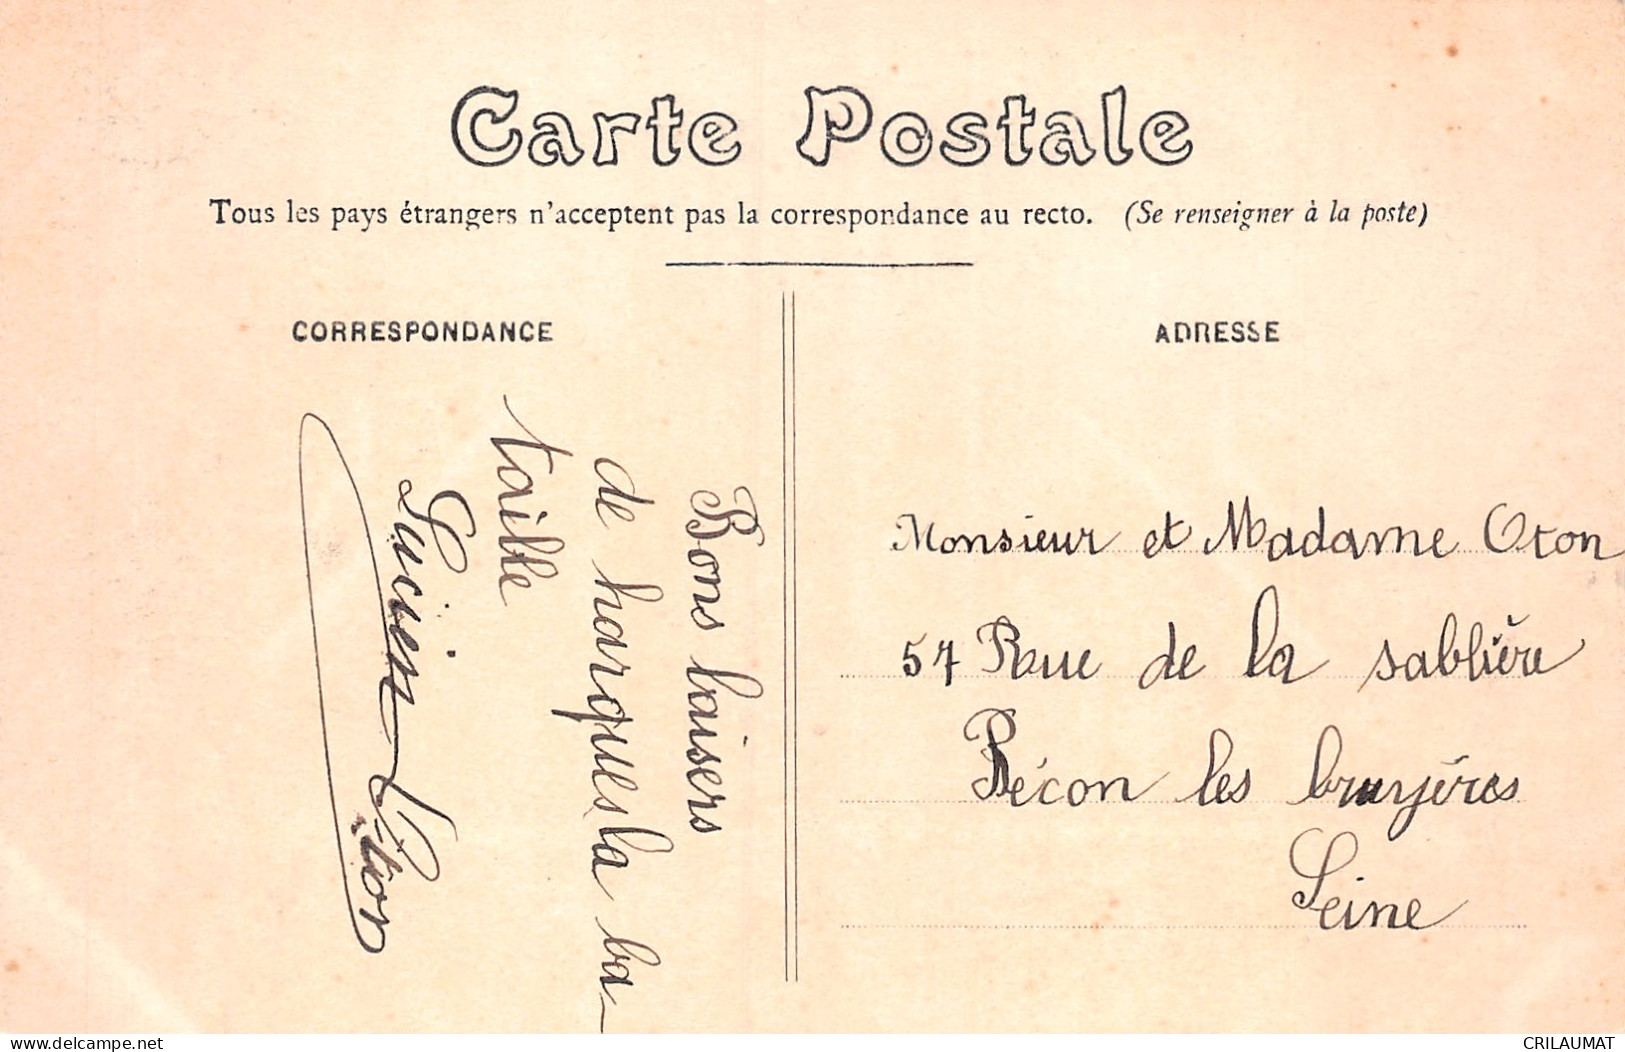 Carte Postale
Tous les pays étrangers n'acceptent pas la correspondance au recto. (Se renseigner à la poste)
CORRESPONDANCE
Bons baisers
de harques la ba-
taible
Lucien Oton
ADRESSE
Monsieur et Madame Oton
57 Rue de la sablière
Bécon les bruyères
Seine
www.delcampe.net
CRILAUMAT